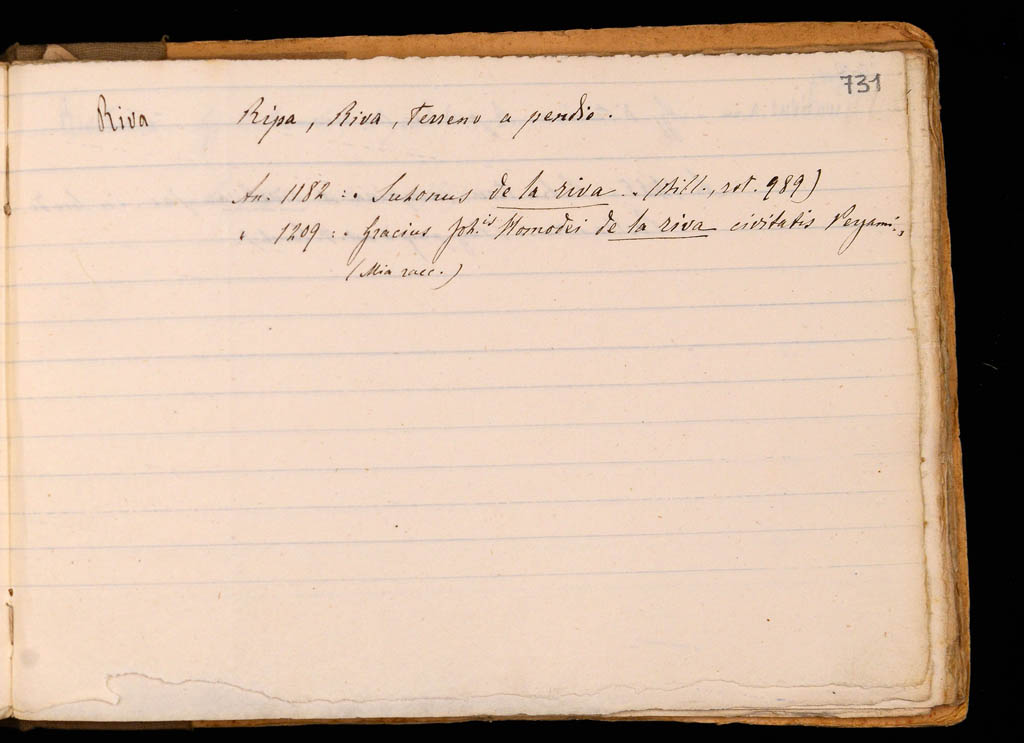 731
Riva Ripa, Riva, Terreno a pendio.
An. 1182 :. Suhonus de la riva .. (Still., rot. 989)
" 1209 :. Gracius Joh.is Homodei de la riva civitatis Pergami.,
(Mia racc.)